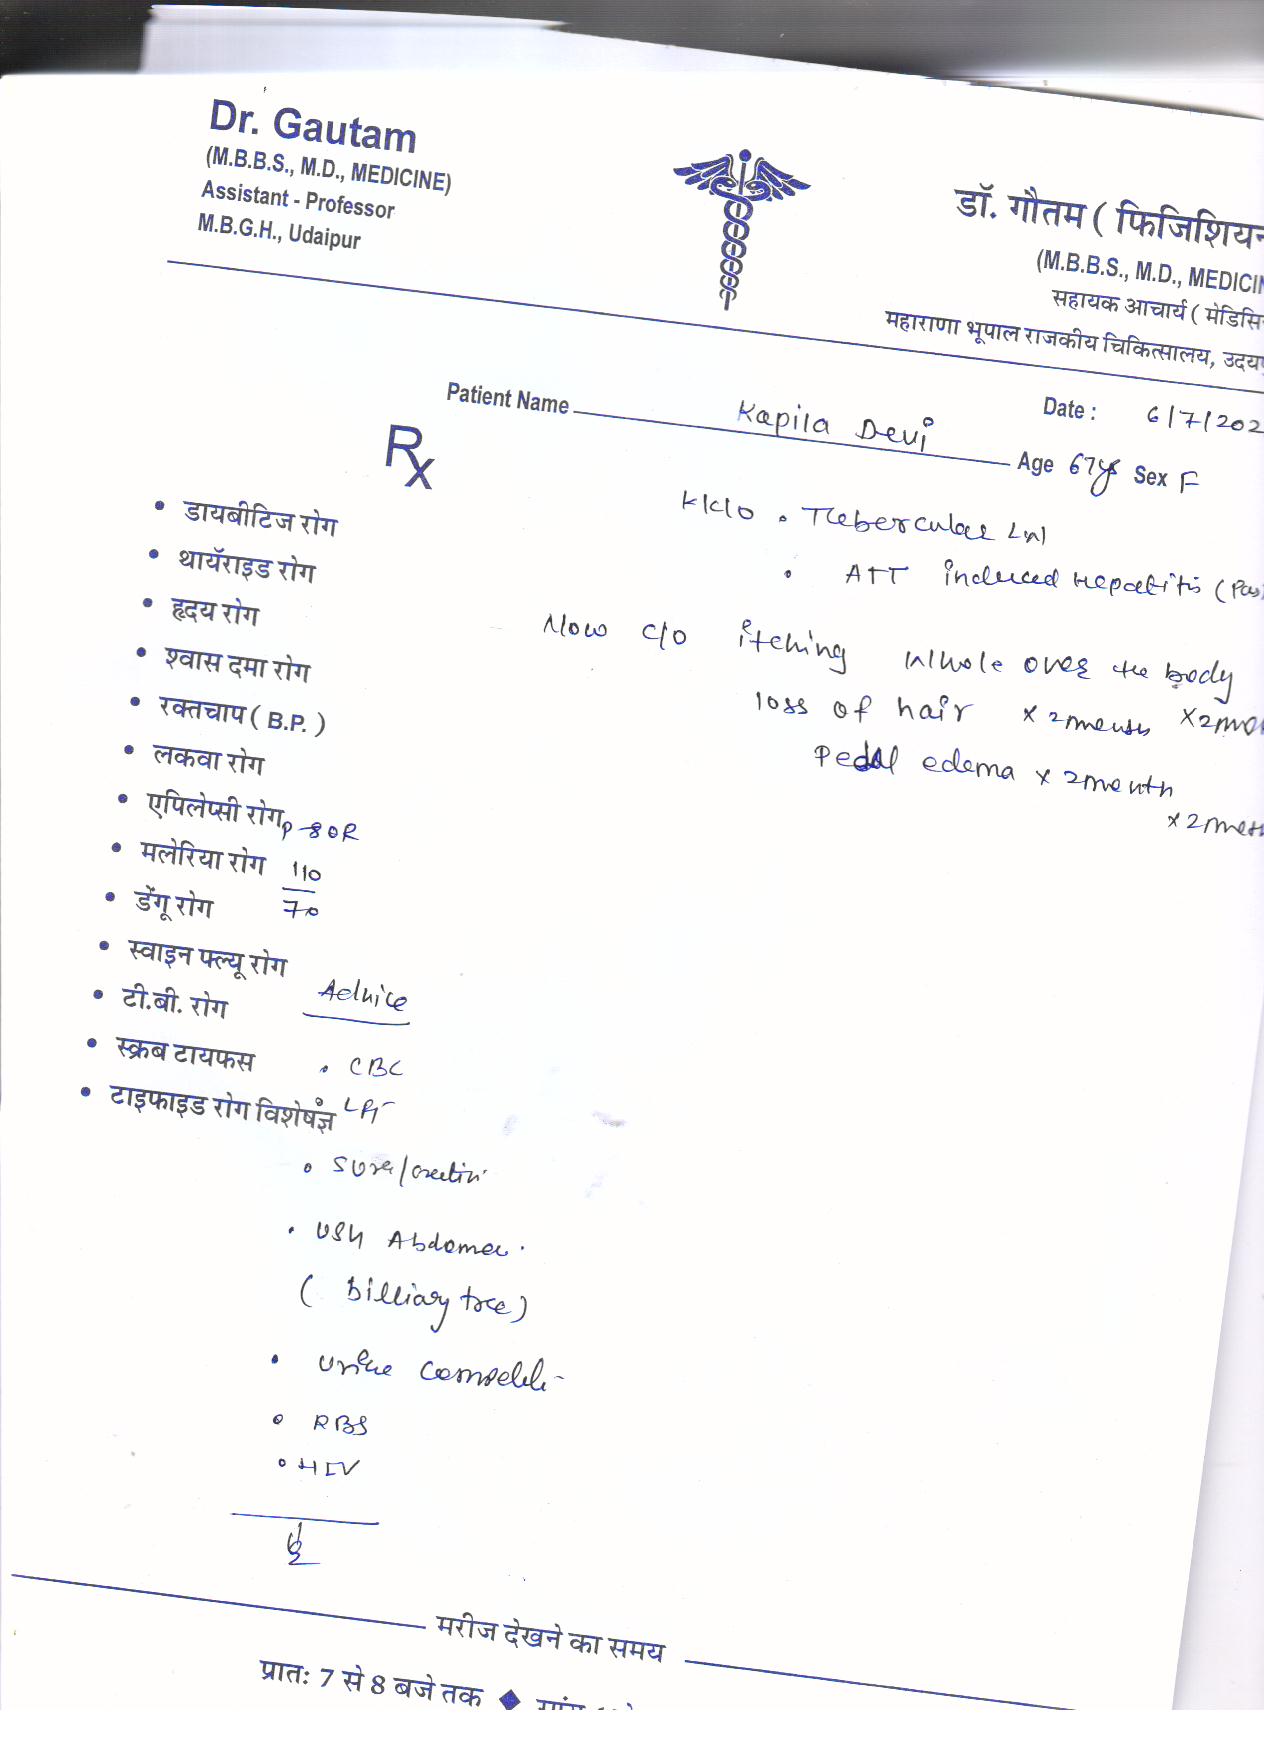 Dr. Gautam
(M.B.B.S., M.D., MEDICINE)
Assistant - Professor
M.B.G.H., Udaipur
डॉ. गौतम ( फिजिशियन
(M.B.B.S., M.D., MEDICIN
सहायक आचार्य ( मेडिसि
महाराणा भूपाल राजकीय चिकित्सालय, उदयपु
Patient Name Kapila Devi Date : 6/7/202
Age 67yr Sex F
Rx
K/c/o • Tubercular LN
• ATT induced Hepatitis (Past
Now c/o itching whole over the body
loss of hair x 2 month x 2 mon
Pedal edema x 2 month
x 2 mont
• डायबीटिज रोग
• थायॅराइड रोग
• हृदय रोग
• श्वास दमा रोग
• रक्तचाप ( B.P. )
• लकवा रोग
• एपिलेप्सी रोग P-80R
• मलेरिया रोग 110
• डेंगू रोग 70
• स्वाइन फ्ल्यू रोग
• टी.बी. रोग Advice
• स्क्रब टायफस • CBC
• टाइफाइड रोग विशेषज्ञ • LFT
• S Urea/creatin
• USG Abdomen
( Billiary tree)
• Urine Complete
• RBS
• HIV
मरीज देखने का समय
प्रातः 7 से 8 बजे तक ◆